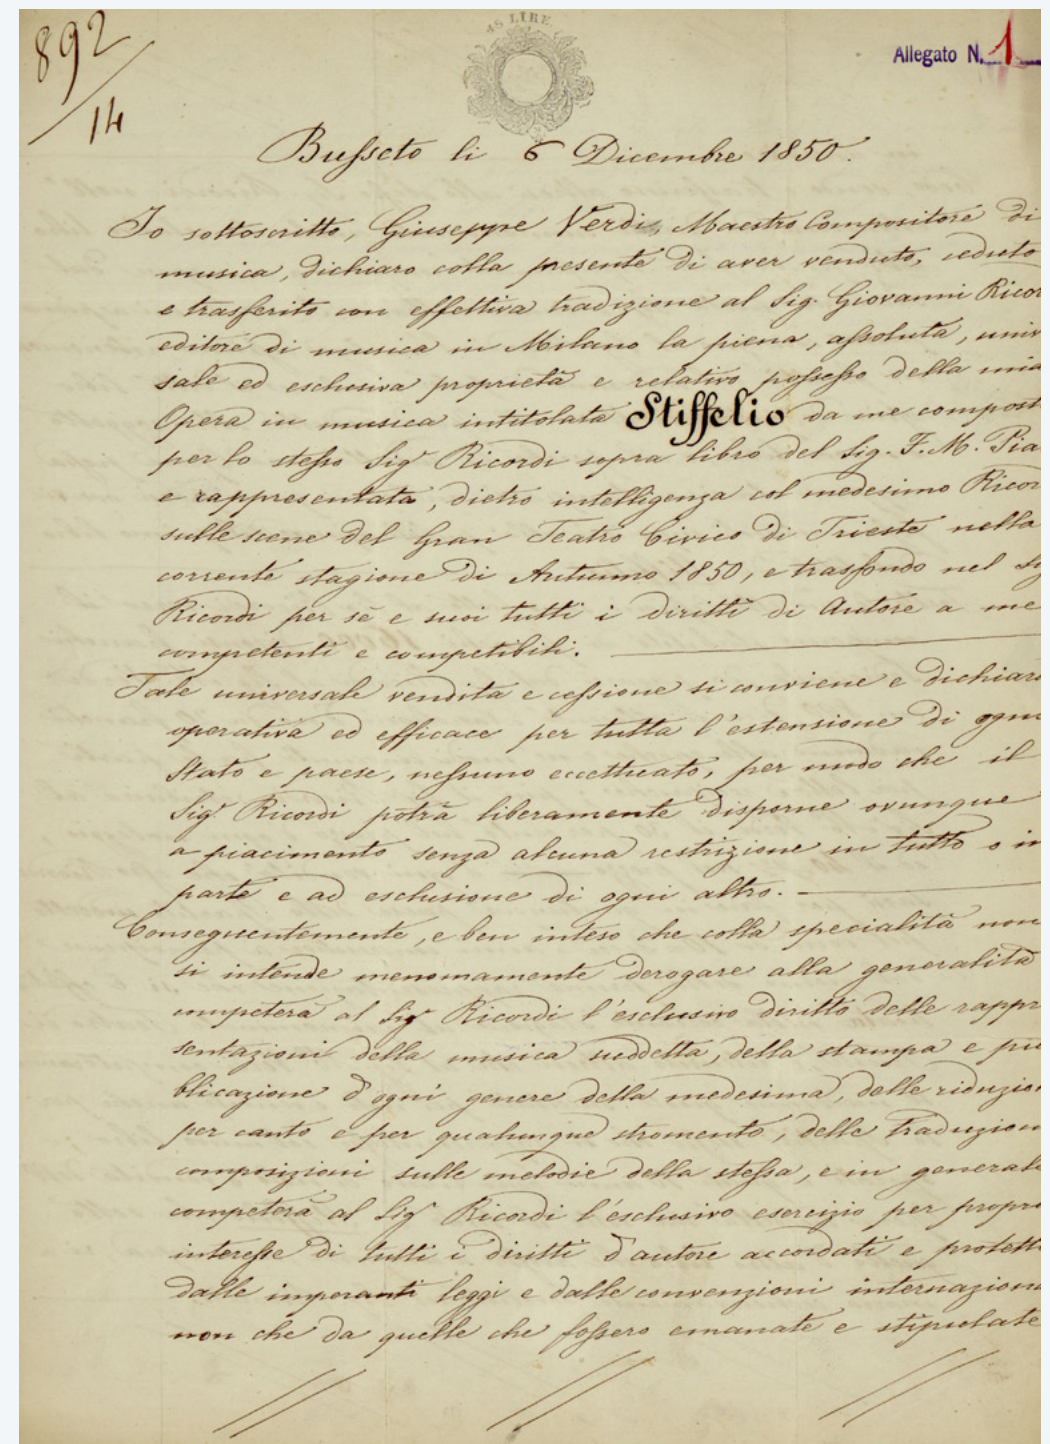 892
14
45 LIRE
Allegato N. 1
Busseto li 6 Dicembre 1850.
Io sottoscritto, Giuseppe Verdi, Maestro Compositore di
musica, dichiaro colla presente di aver venduto, ceduto
e trasferito con effettiva tradizione al Sig. Giovanni Ricor
editore di musica in Milano la piena, assoluta, univ
sale ed esclusiva proprietà e relativo possesso della mia
Opera in musica intitolata Stiffelio da me compost
per lo stesso Sigr Ricordi sopra libro del Sig. F. M. Pia
e rappresentata, dietro intelligenza col medesimo Ricor
sulle scene del Gran Teatro Civico di Trieste nella
corrente stagione di Autunno 1850, e trasfondo nel Sig
Ricordi per sè e suoi tutti i diritti di Autore a me
competenti e competibili.
Tale universale vendita e cessione si conviene e dichiara
operativa ed efficace per tutta l'estensione di ogni
Stato e paese, nessuno eccettuato, per modo che il
Sigr Ricordi potrà liberamente disporne ovunque
a piacimento senza alcuna restrizione in tutto o in
parte e ad esclusione di ogni altro.
Conseguentemente, e ben inteso che colla specialità non
si intende menomamente derogare alla generalità
competerà al Sigr Ricordi l'esclusivo diritto delle rappr
sentazioni della musica suddetta, della stampa e pu
blicazione d'ogni genere della medesima, delle riduzion
per canto e per qualunque stromento, delle traduzion
composizioni sulle melodie della stessa, e in generale
competerà al Sigr Ricordi l'esclusivo esercizio per propri
interesse di tutti i diritti d'autore accordati e protett
dalle imperanti leggi e dalle convenzioni internazion
non che da quelle che fossero emanate e stipulate